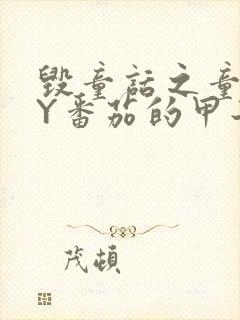 毁童话之童
Y番茄的甲
茂顿